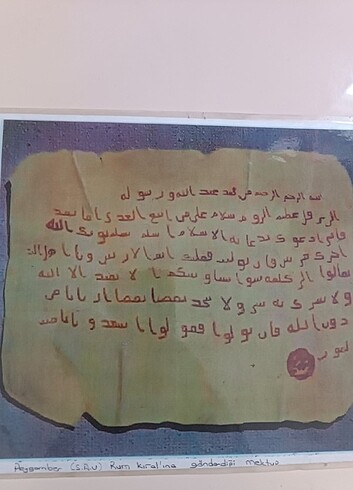 الرحمن الرحيم من محمد عبد الله ورسوله
الى هرقل عظيم الروم سلام على من اتبع الهدى اما بعد
فانى ادعوك بدعايه الاسلام اسلم تسلم يوتك الله
اجرك مرتين فان توليت فعليك اثم ويا اهل
تعالوا الى كلمه سوا بيننا وبينكم الا نعبد الا الله
ولا نشرك به ولا يتخذ بعضنا بعضا اربابا من
دون الله فان تولوا فقولوا اشهدوا بانا مس
لمون
Peygamber (S.A.V) Rum kıral'ına gönderdiği mektup